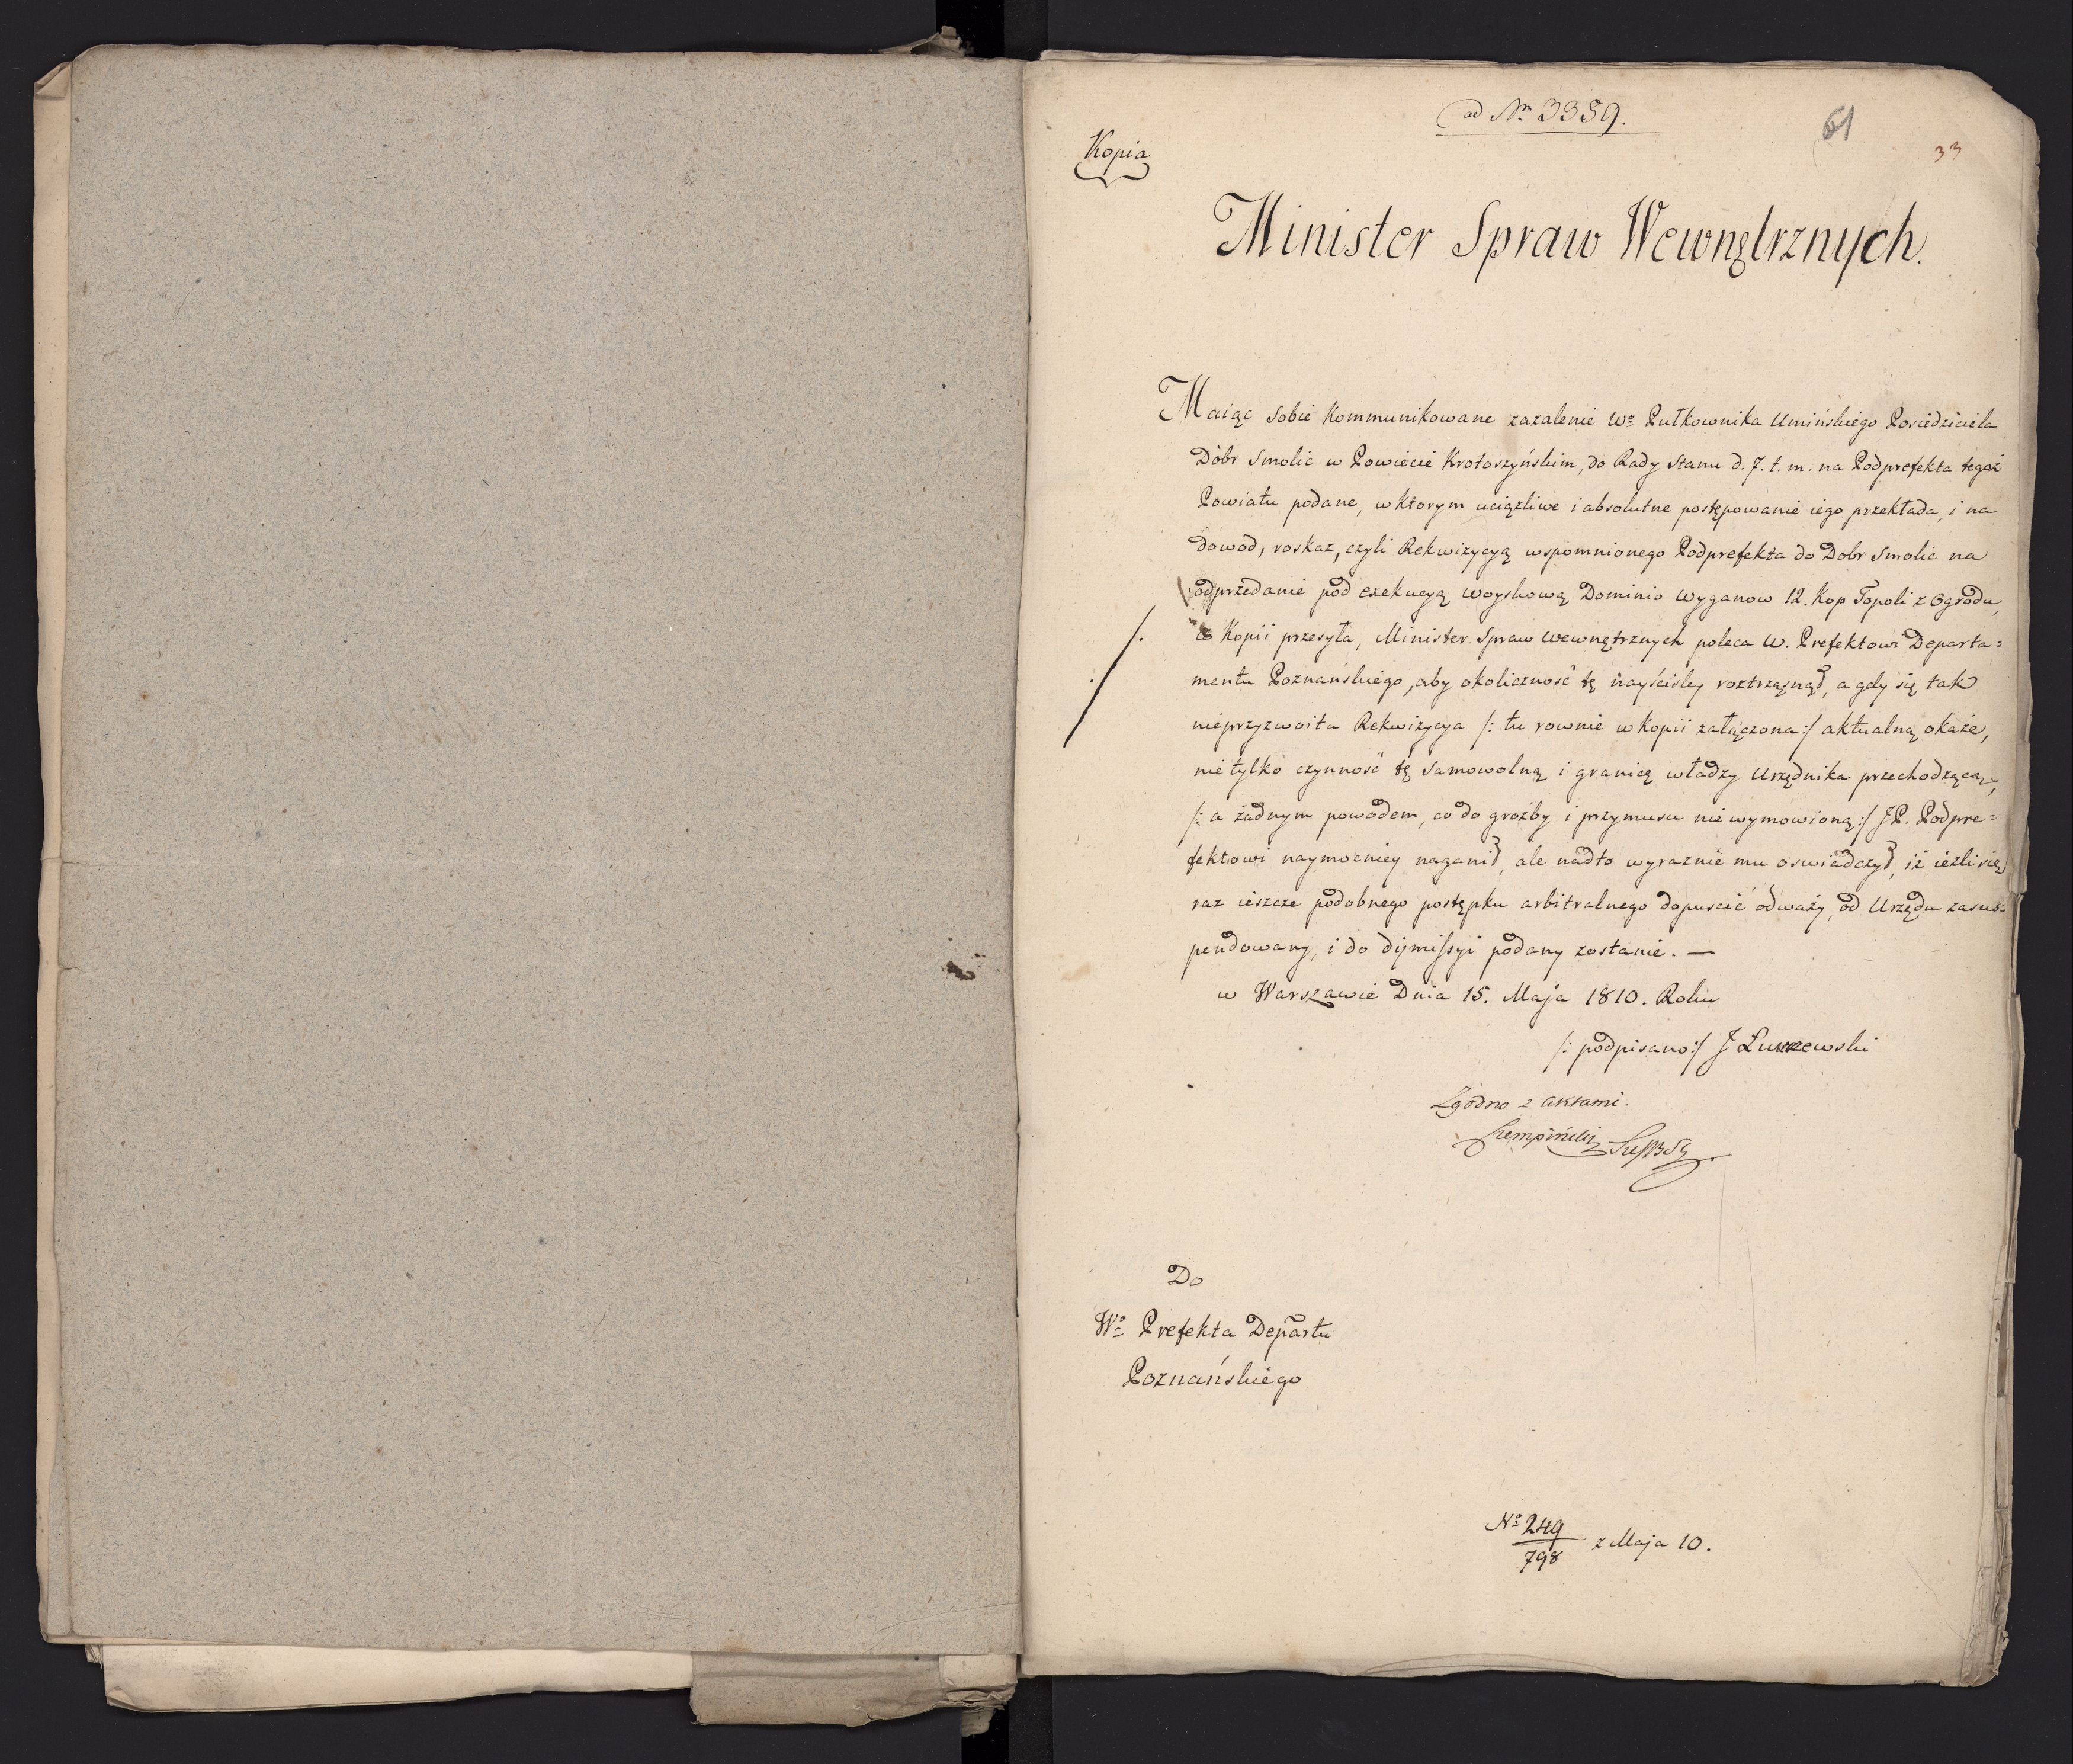 ad Nr. 3359.
61
33
Kopia
Minister Spraw Wewnętrznych.
Maiąc sobie kommunikowane zazalenie Wº Pułkownika Umińskiego Posiedziciela
Dóbr Smolic w Powiecie Krotoszyńskim, do Rady Stanu d. 7. t. m. na Podprefekta tegoż
Powiatu podane, w ktorym uciążliwe i absolutne postępowanie iego przekłada, i na
dowod, roskaz, czyli Rekwizycyą wspomnionego Podprefekta do Dobr Smolic na
odprzedanie pod exekucyą woyskową Dominio Wyganow 12. Kop Topoli z Ogrodu,
w Kopii przesyła, Minister Spraw Wewnętrznych poleca W. Prefektowi Departa=
mentu Poznańskiego, aby okoliczność tę nayściśley roztrząsnął, a gdy się tak
nieprzyzwoita Rekwizycya /: tu rownie w kopii załączona:/ aktualną okaże,
nie tylko czynność tę samowolną i granicę władzy Urzędnika przechodzącą,
/: a żadnym powodem, co do groźby i przymusu nie wymowioną:/ JP. Podpre=
fektowi naymocniey naganił, ale nadto wyraznie mu oswiadczył, iż ieżli się
raz ieszcze podobnego postępku arbitralnego dopuscić odważy, od Urzędu zasus=
pendowany, i do dijmissyi podany zostanie. —
w Warszawie Dnia 15. Maja 1810. Roku
/: podpisano:/ J Łuszczewski
Zgodno z aktami.
Do
Wº Prefekta Departu
Poznańskiego
Nº 249
798 z Maja 10.